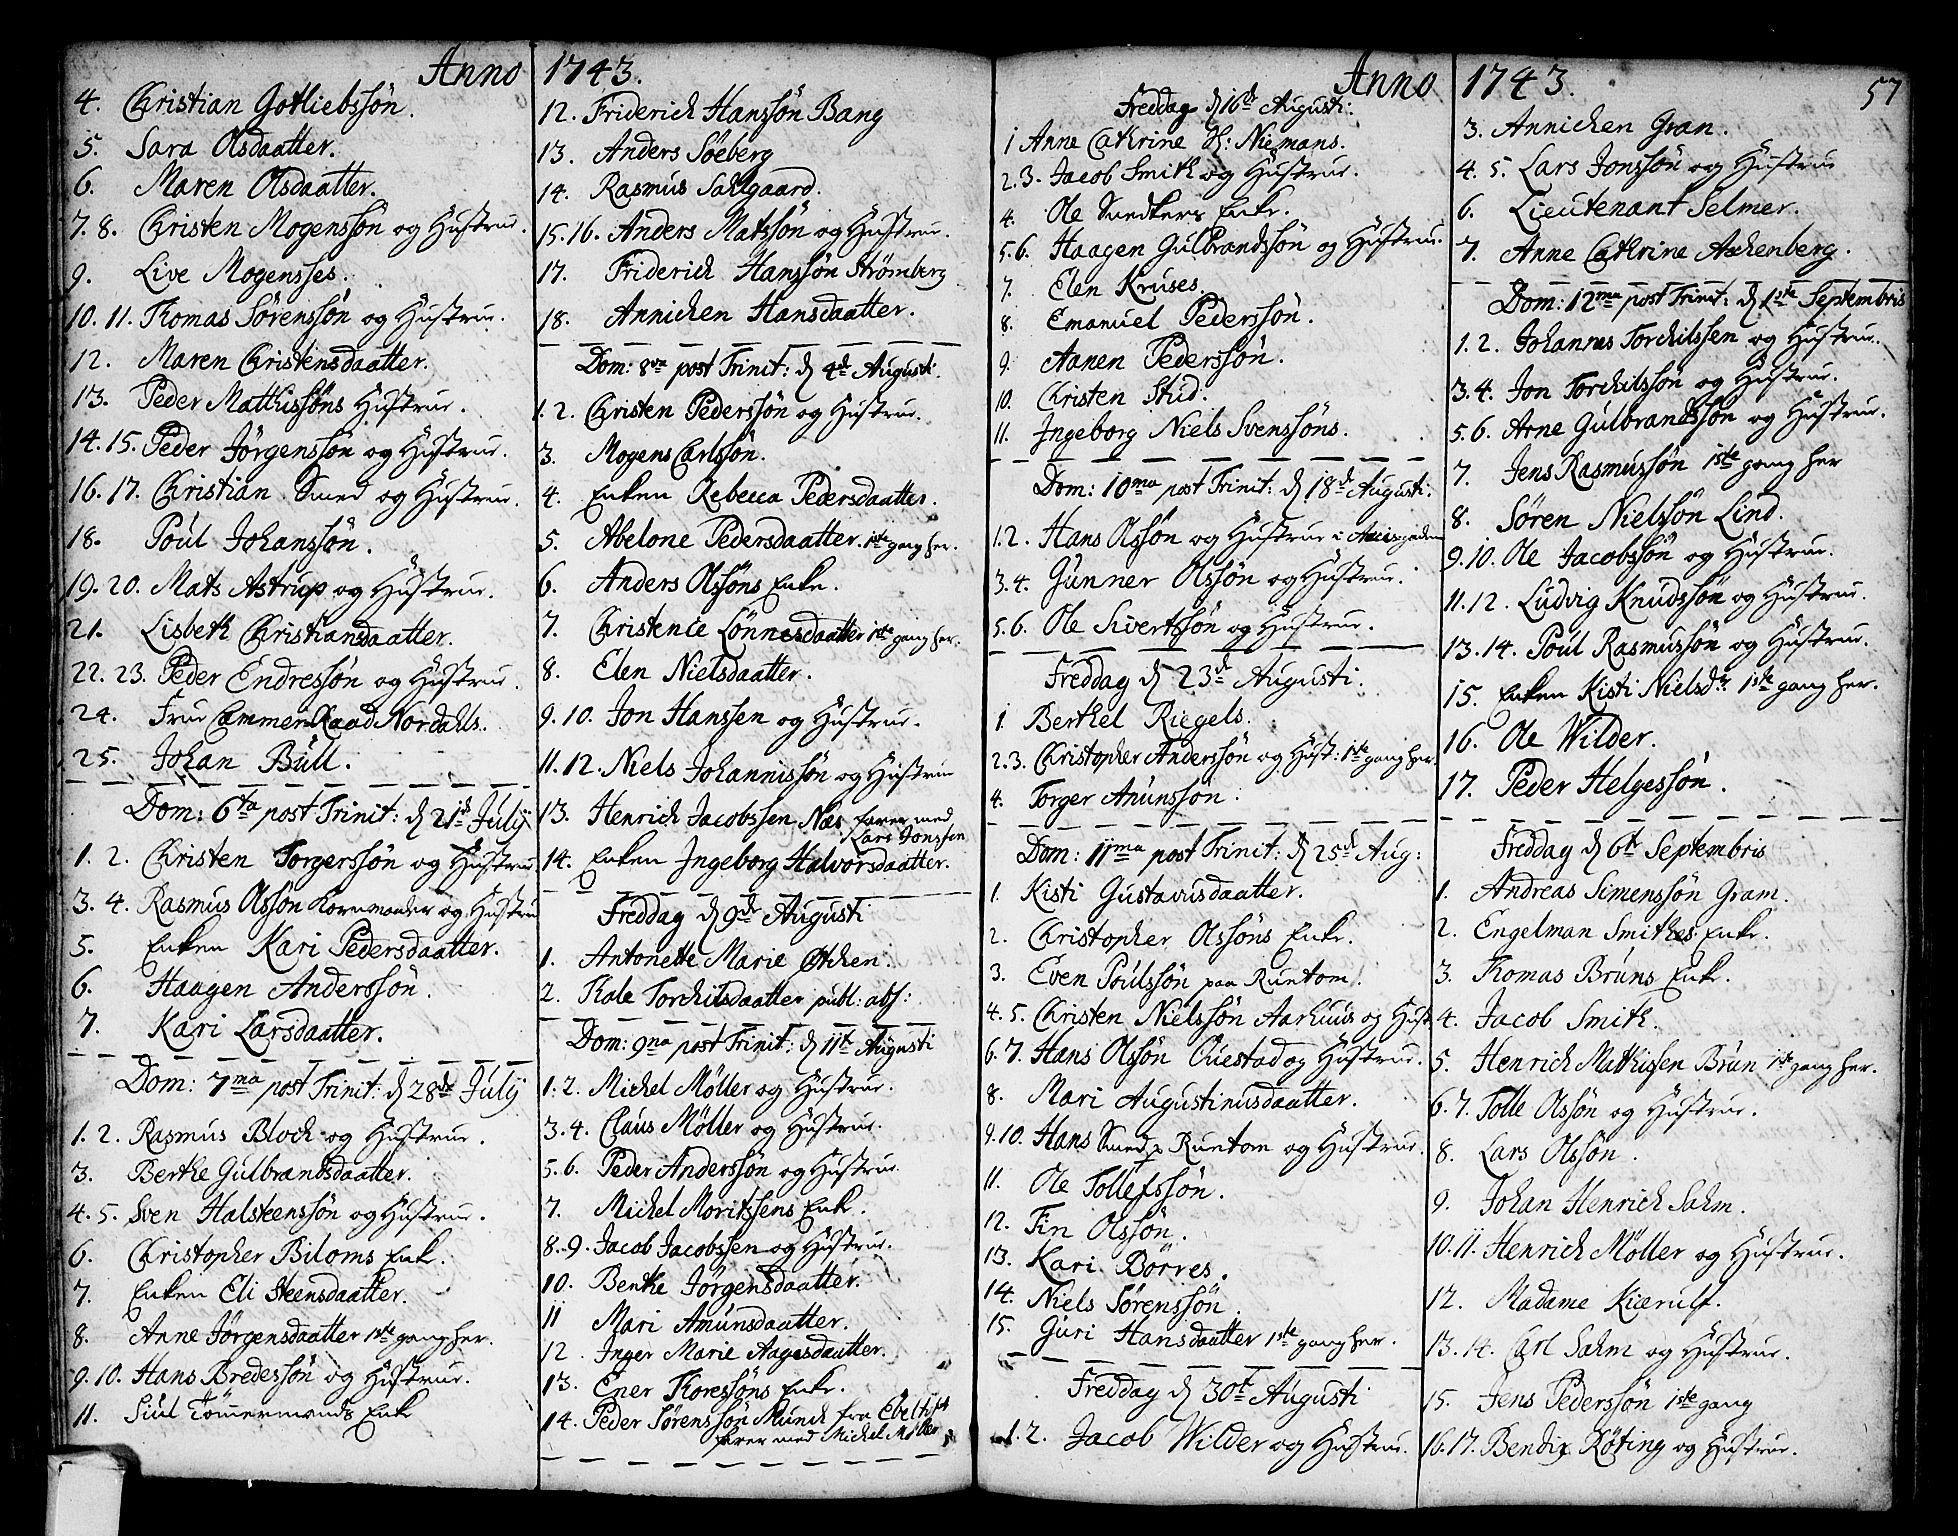 Anno 1743.
4. Christian Gotliebssön.
5. Sara Olsdaatter.
6. Maren Olsdaatter.
7. 8. Christen Mogenssön og Hustrue.
9. Live Mogensses.
10. 11. Thomas Sørenssön og Hustrue.
12. Maren Christensdaatter.
13. Peder Matthissöns Hustrue.
14. 15. Peder Jörgenssön og Hustrue.
16. 17. Christian Smed og Hustrue.
18. Poul Johanssön.
19. 20. Mats Astrup og Hustrue.
21. Lisbeth Christiansdaatter.
22. 23. Peder Endressön og Hustrue.
24. Frue CammerRaad Nordahls.
25. Johan Bull.
Dom: 6ta post Trinit: d 21de July
1. 2. Christen Torgerssön og Hustrue
3. 4. Rasmus Olssön Kornmaaler og Hustrue
5. Enken Kari Pedersdaatter.
6. Haagen Anderssön.
7. Kari Larsdaatter.
Dom: 7ma post Trinit: d 28de July
1. 2. Rasmus Bloch og Hustrue.
3. Berthe Gulbrandsdaatter.
4. 5. Sven Halsteenssön og Hustrue.
6. Christopher Biloms Enk.
7. Enken Eli Steensdaatter.
8. Anne Jörgensdaatter 1ste gang her.
9. 10. Hans Bredessön og Hustrue.
11. Siul Tömmermands Enk
12. Friderich Hanssön Bang
13. Anders Söeberg
14. Rasmus Sahlgaard.
15. 16. Anders Matssön og Hustrue.
17. Friderich Hanssön Strömberg
18. Annichen Hansdaatter.
Dom: 8va post Trinit: d 4de Augusti.
1. 2. Christen Pederssön og Hustrue.
3. Mogens Carlssön.
4. Enken Rebecca Pedersdaatter.
5. Abelone Pedersdaatter. 1ste gang her.
6. Anders Olssöns Enke.
7. Christence Lönnesdaatter 1ste gang her.
8. Elen Nielsdaatter.
9. 10. Jon Hanssen og Hustrue.
11. 12. Niels Johannissön og Hustrue
13. Henrich Jacobssen Næs farer med
Lars Jonssen
14. Enken Ingeborg Halvorsdaatter.
Freddag d 9de Augusti
1. Antonette Marie Otken.
2. Kale Torchilsdaatter publ: abs:
Dom: 9na post Trinit: d 11te Augusti
1. 2. Michel Møller og Hustrue.
3. 4. Claus Møller og Hustrue.
5. 6. Peder Anderssön og Hustrue.
7. Michel Moritssens Enk.
8. 9. Jacob Jacobssen og Hustrue.
10. Benthe Jörgensdaatter.
11 Mari Amunsdaatter.
12. Inger Marie Aagesdaatter.
13. Ener Thoressöns Enke.
14. Peder Sörenssön Munch fra Ebeltoft
farer med Michel Møller
Anno 1743. 57
Freddag d 16de Augusti:
1 Anne Cathrine H: Niemans.
2. 3. Jacob Smith og Hustrue.
4. Ole Snedkers Enke.
5. 6. Haagen Gulbrandssön og Hustrue.
7. Elen Kruses.
8. Emanuel Pederssön.
9. Aanen Pederssön.
10. Christen Stud.
11. Ingeborg Niels Svenssöns.
Dom: 10ma post Trinit: d 18de Augusti.
1. 2. Hans Olssön og Hustrue i
3. 4. Gunner Olssön og Hustrue.
5. 6. Ole Sivertssön og Hustrue.
Freddag d 23de Augusti.
1. Berthel Riegels.
2. 3. Christopher Anderssön og Hust: 1ste gang her.
4. Torger Anunssön.
Dom: 11ma post Trinit: d 25de Aug:
1. Kisti Gustavusdaatter.
2. Christopher Olssöns Enke.
3. Even Poulssön paa Runtom.
4. 5. Christen Nielssön Aarhuus og Hust
6. 7. Hans Olssön Questad og Hustrue.
8. Mari Augustinusdaatter.
9. 10. Hans Smed p Runtom og Hustrue.
11. Ole Tollefssön.
12. Fin Olssön.
13. Kari Børres.
14. Niels Sörenssön.
15. Guri Hansdaatter 1ste gang her.
Freddag d 30te Augusti
1. 2. Jacob Wilder og Hustrue.
3. Annichen Gran.
4. 5. Lars Jonssön og Hustrue
6. Lieutenant Selmer.
7. Anne Cathrine Achenberg.
Dom: 12ma post Trinit: d 1ste Septembris
1. 2. Johannes Torchilssen og Hustrue.
3. 4. Jon Torchilssön og Hustrue.
5. 6. Arne Gulbrandssön og Hustrue.
7. Jens Rasmussön 1ste gang her
8. Søren Nielssön Lind.
9. 10. Ole Jacobssön og Hustrue.
11. 12. Ludvig Knudssön og Hustrue.
13. 14. Poul Rasmussön og Hustrue.
15. Enken Kisti Nielsdr. 1ste gang her.
16. Ole Wilder.
17. Peder Helgessön.
Freddag d 6te Septembris
1. Andreas Simenssön Gram.
2. Engelman Smithes Enke.
3. Thomas Bruns Enke.
4. Jacob Smith.
5. Henrich Mathissen Brun 1ste gang her.
6. 7. Tolle Olssön og Hustrue.
8. Lars Olssön.
9. Johan Henrich Sahm.
10. 11. Henrich Møller og Hustrue.
12. Madame Kierulf.
13. 14. Carl Sahm og Hustrue.
15. Jens Pederssön 1ste gang
16. 17. Bendix Köting og Hustrue.